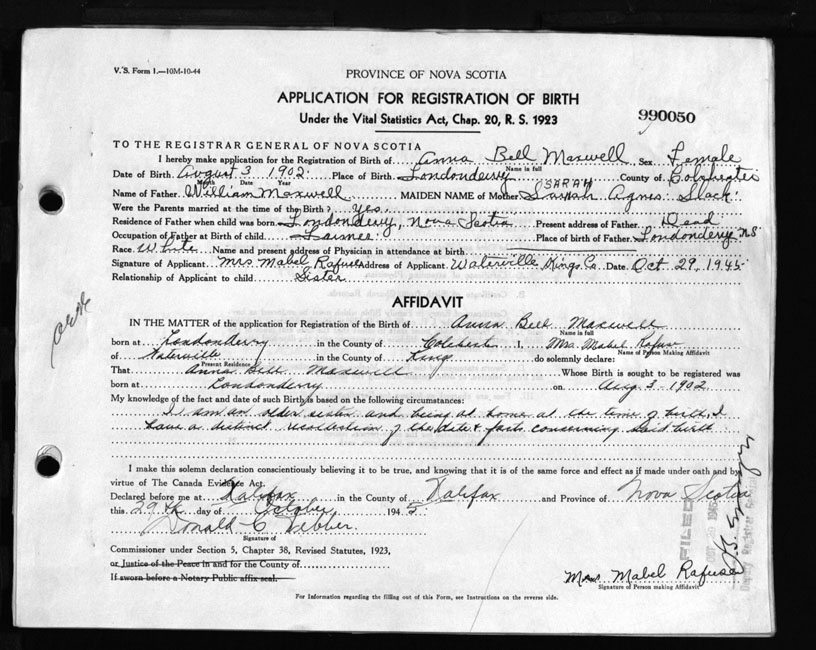 V. S. Form 1.—10M-10-44
PROVINCE OF NOVA SCOTIA
APPLICATION FOR REGISTRATION OF BIRTH
990050
Under the Vital Statistics Act, Chap. 20, R. S. 1923
TO THE REGISTRAR GENERAL OF NOVA SCOTIA
I hereby make application for the Registration of Birth of Anna Bell Maxwell Sex Female
Name in full
Date of Birth August 3 1902 Place of Birth Londonderry County of Colchester
Month Date Year
SARAH
Name of Father William Maxwell MAIDEN NAME of Mother Sarah Agnes Slack
Were the Parents married at the time of the Birth? Yes.
Residence of Father when child was born Londonderry, Nova Scotia Present address of Father Dead
Occupation of Father at Birth of child Farmer Place of birth of Father Londonderry N.S
Race White Name and present address of Physician in attendance at birth
Signature of Applicant Mrs Mabel Rafuse Address of Applicant Waterville Kings Co. Date Oct 29, 1945
Relationship of Applicant to child Sister
AFFIDAVIT
IN THE MATTER of the application for Registration of the Birth of Anna Bell Maxwell
Name in full
born at Londonderry in the County of Colchest I, Mrs. Mabel Rafuse
Name of Person Making Affidavit
of Waterville in the County of King do solemnly declare:
Present Residence
That Anna Bell Maxwell Whose Birth is sought to be registered was
born at Londonderry on Aug 3-1902
My knowledge of the fact and date of such Birth is based on the following circumstances:
I am an older sister and being at home at the time of birth, I
have a distinct recollection of the date & facts concerning said birth
I make this solemn declaration conscientiously believing it to be true, and knowing that it is of the same force and effect as if made under oath and by
virtue of The Canada Evidence Act.
Declared before me at Halifax in the County of Halifax and Province of Nova Scotia
this 29th day of October, 1945
Donald C Webber
Signature of
Commissioner under Section 5, Chapter 38, Revised Statutes, 1923,
or Justice of the Peace in and for the County of
If sworn before a Notary Public affix seal.
Mrs Mabel Rafuse
Signature of Person making Affidavit
For Information regarding the filling out of this Form, see Instructions on the reverse side.
FILED